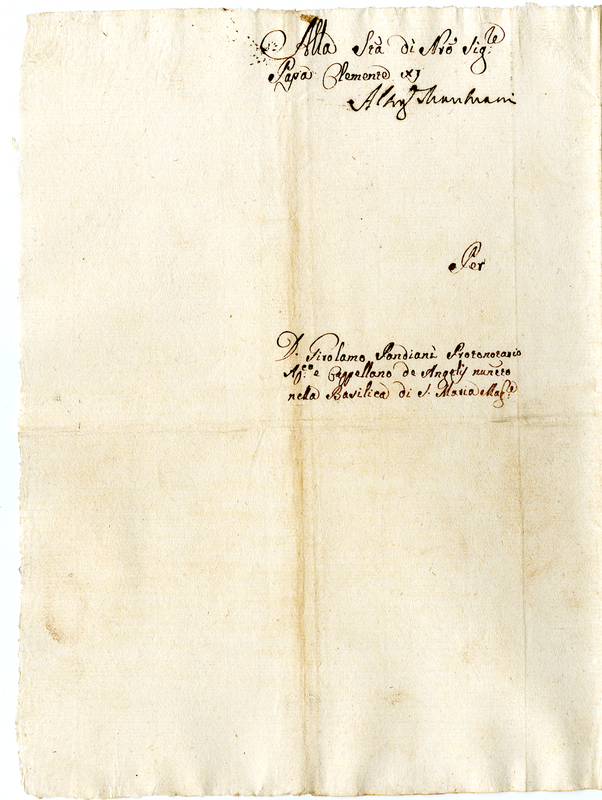 Alla Stà di Nrō Sig.re
Papa Clemente XJ
Per
D. Girolamo Pandiani Protonotario
Ap.co e Cappellano de Angelis
nella Basilica di S. Maria Mag.re